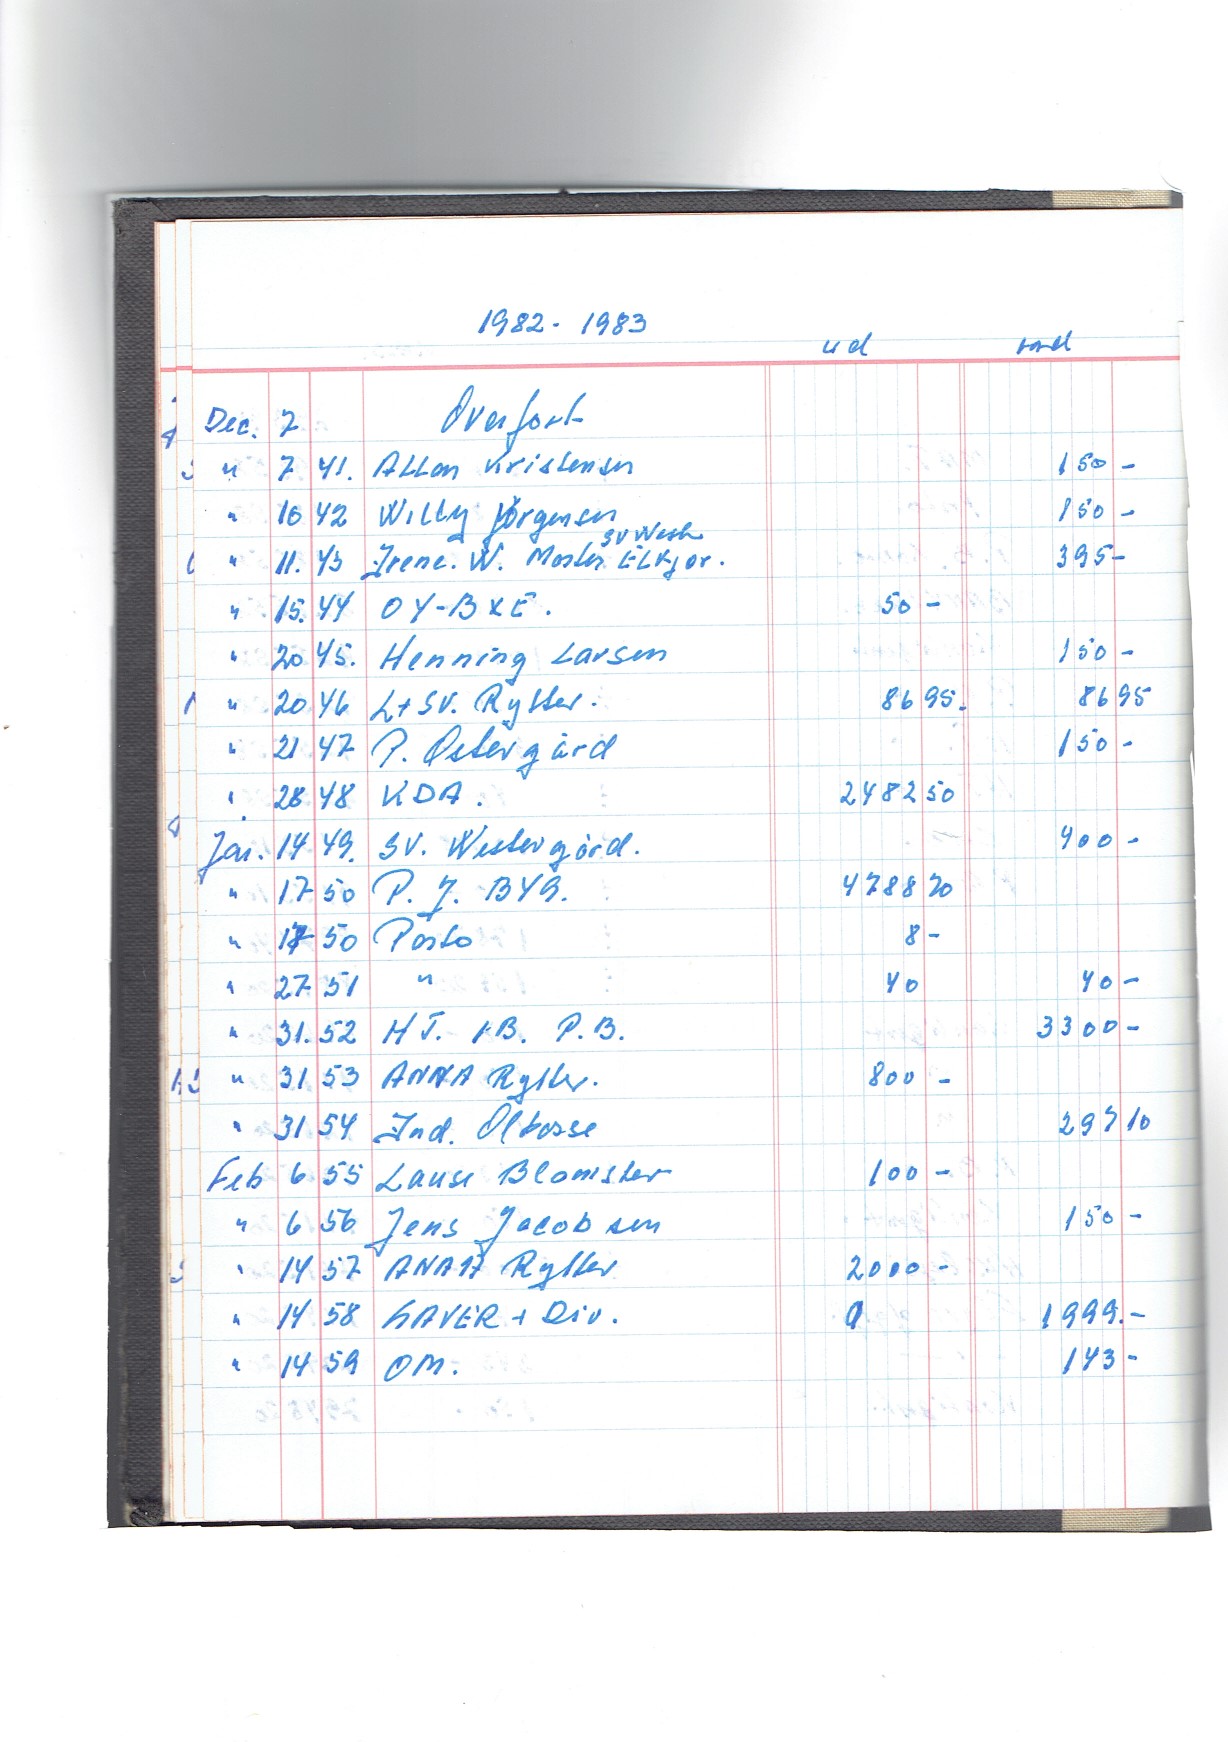 1982 - 1983
ud ind
Dec. 7 Overført
" 7 41. Allan Kristensen 150 -
" 10 42 Willy Jørgensen 150 -
SV West
" 11. 43 Irene. W. Elkjor. 395 -
" 15. 44 OY-BXE. 50 -
" 20 45. Henning Larsen 150 -
" 20 46 L+SV. Rytter. 86 95. 86 95
" 21 47 P. Østergård 150 -
" 28 48 KDA. 2482 50
Jan. 14 49. SV. Westergård. 400 -
" 17 50 P. J. BYG. 4788 20
" 17 50 Porto 8 -
" 27 51 " 40 40 -
" 31. 52 HJ. P.B. 3300 -
" 31 53 ANNA Rytter. 800 -
" 31 54 Ind. Ølkasse 297 10
Feb 6 55 Lause Blomster 100 -
" 6 56 Jens Jacobsen 150 -
" 14 57 ANNA Rytter 2000 -
" 14 58 GAVER + Div. 1999. -
" 14 59 OM. 143 -